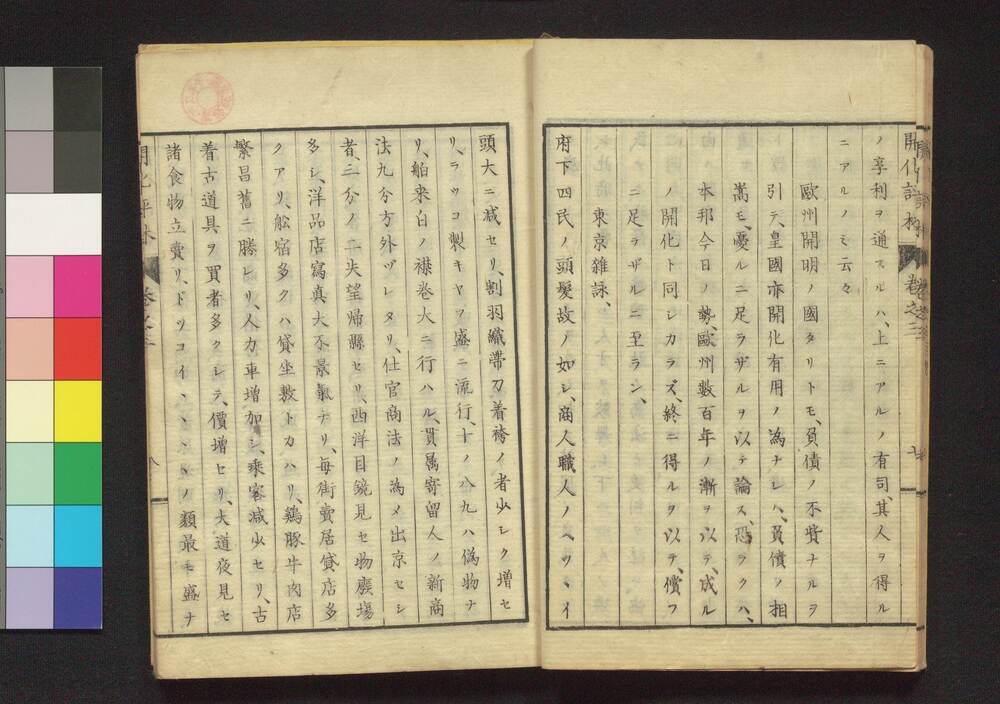 開化評林 卷之三 七
ノ享利ヲ通スルハ、上ニアルノ有司、其人ヲ得ル
ニアルノミ云々
歐州開明ノ國タリトモ、負債ノ不貲ナルヲ
引テ、皇國亦開化有用ノ為ナレハ、負債ノ相
嵩モ、憂ルニ足ラザルヲ以テ論ス、恐ラクハ、
本邦今日ノ勢、歐州數百年ノ漸ヲ以テ、成ル
ノ開化ト同シカラズ、終ニ得ルヲ以テ、償フ
ニ足ラザルニ至ラン、
東京雜詠、
府下四民ノ頭髮故ノ如シ、商人職人ノヘツヽイ
頭大ニ减セリ、割羽織帶刀、着袴ノ者少シク増セ
リ、ラツコ製キヤツ盛ニ流行、十ノ八九ハ偽物ナ
リ、舶来白ノ襟卷大ニ行ハル、貫属寄留人ノ新商
法九分方外ヅレタリ、仕官商法ノ為メ出京セシ
者、三分ノ二失望帰縣セリ、西洋目鏡見セ物廢場
多シ、洋品店寫真大不景氣ナリ、毎街賣居貸店多
クアリ、舩宿多クハ貸坐敷トカハリ、鷄豚牛肉店
繁昌舊ニ勝レリ、人力車増加シ、乘客减少セリ、古
着古道具ヲ買者多クシテ、價増セリ、大道夜見セ
諸食物立賣リ、ドツコイ、、、、ノ類最モ盛ナ
開化評林 卷之三 八